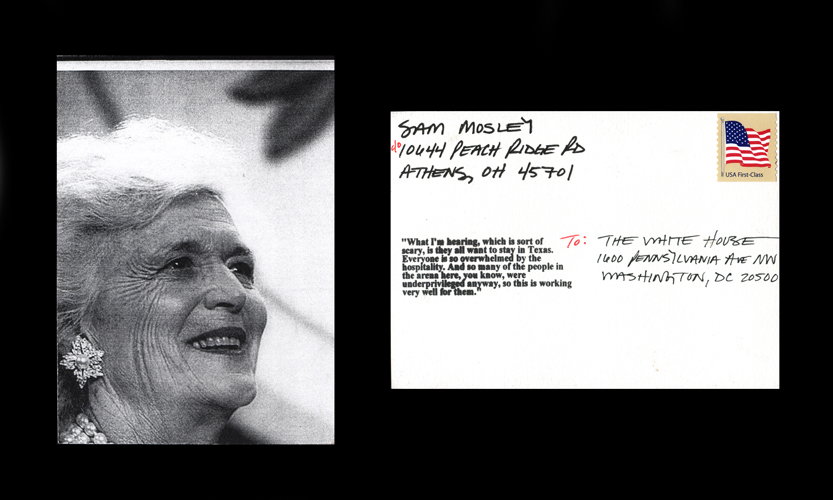 SAM MOSLEY
c/o 10644 PEACH RIDGE RD
ATHENS, OH 45701
USA First-Class
"What I'm hearing, which is sort of
scary, is they all want to stay in Texas.
Everyone is so overwhelmed by the
hospitality. And so many of the people in
the arena here, you know, were
underprivileged anyway, so this is working
very well for them."
To: THE WHITE HOUSE
1600 PENNSYLVANIA AVE NW
WASHINGTON, DC 20500